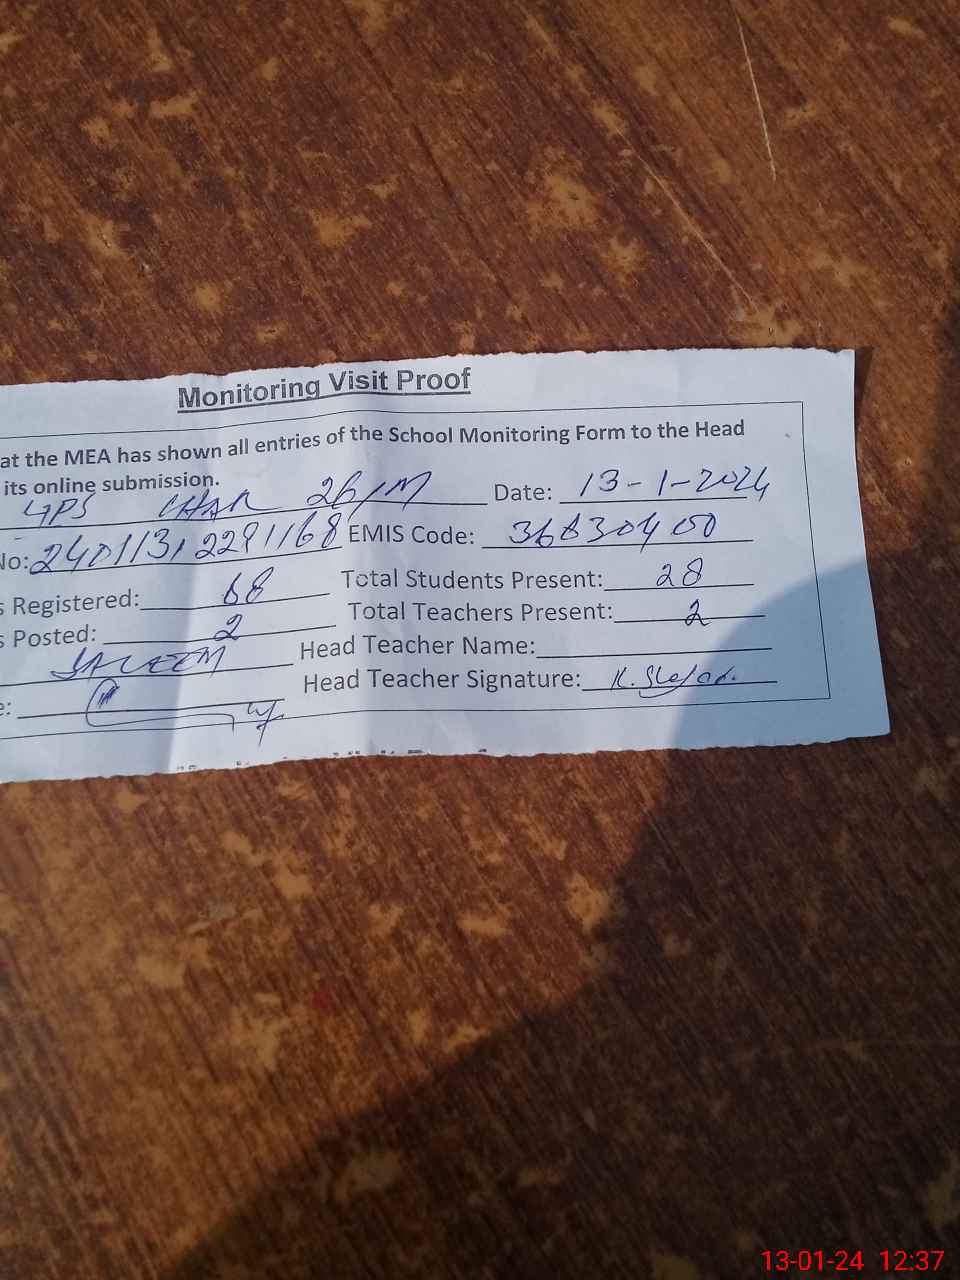 Monitoring Visit Proof
at the MEA has shown all entries of the School Monitoring Form to the Head
its online submission.
GPS CHAK 26/M Date: 13-1-2024
No: 240113, 2291168 EMIS Code: 36830400
s Registered: 68 Total Students Present: 28
s Posted: 2 Total Teachers Present: 2
SALEEM Head Teacher Name:
e: Head Teacher Signature:
13-01-24 12:37